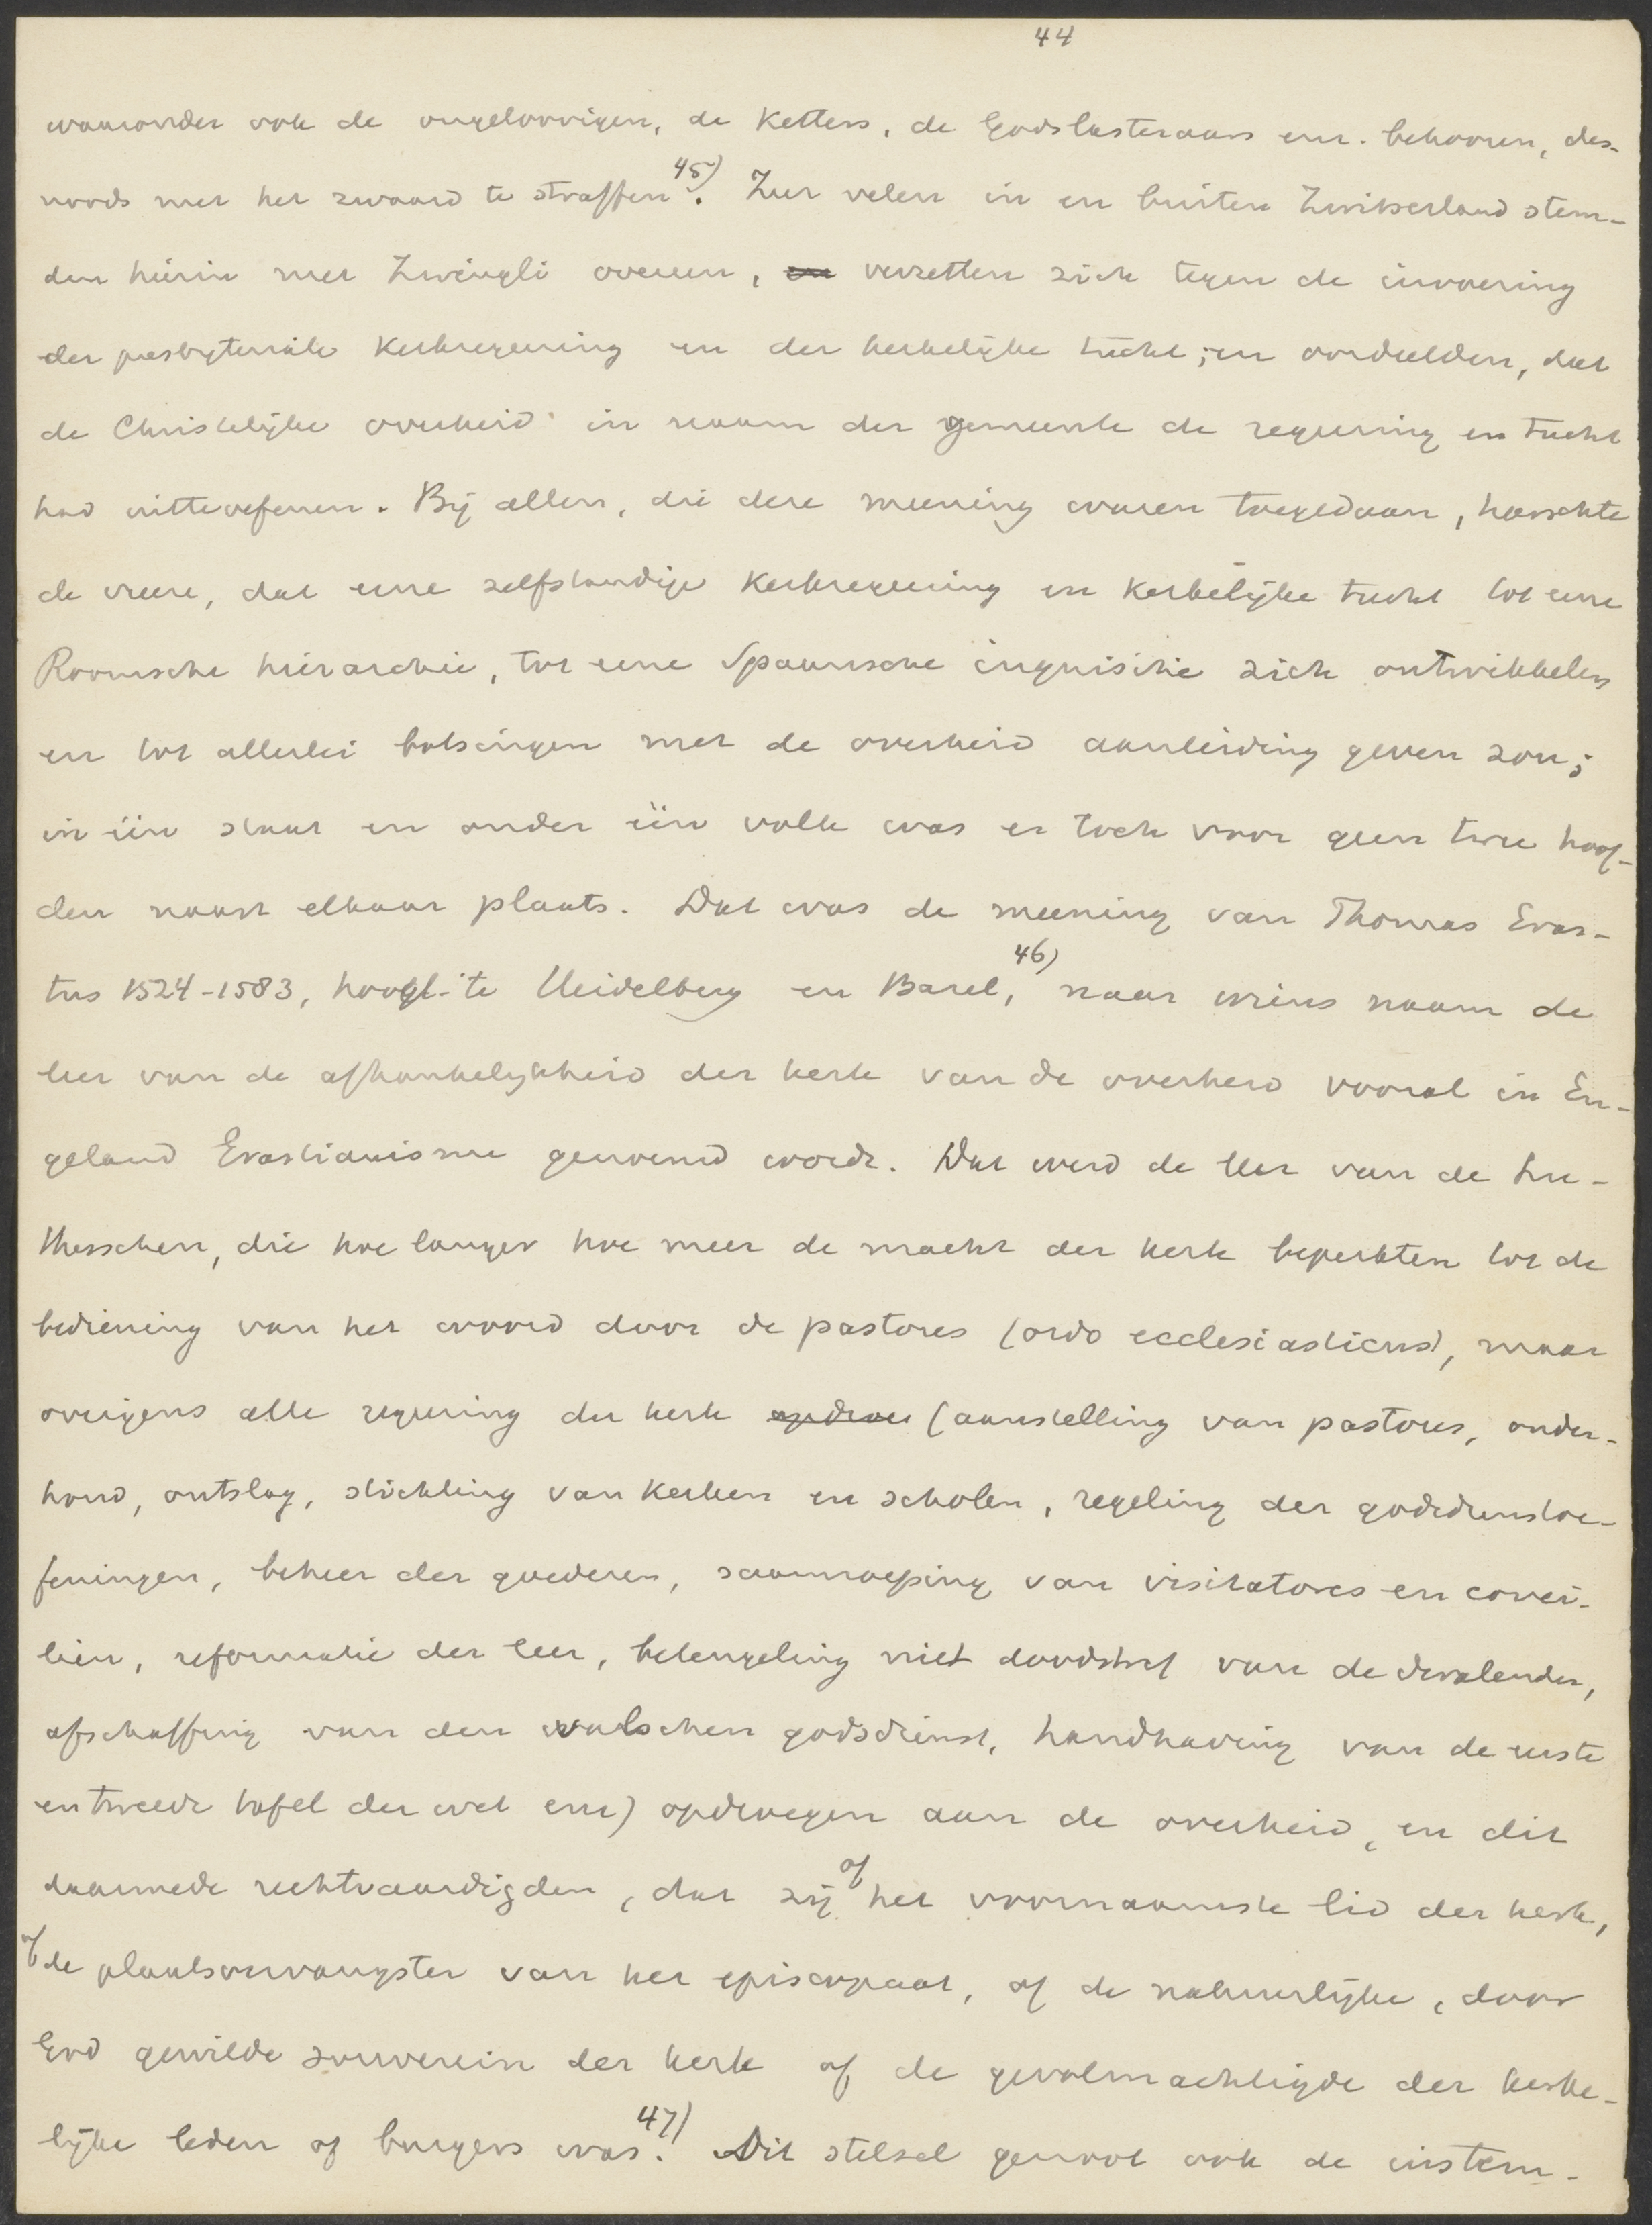 44
waaronder ook de ongeloovigen, de Ketters, de Godslasteraars enz. behooren, des-
noods met het zwaard te straffen 45). Zeer velen in en buiten Zwitserland stem-
den hierin met Zwingli overeen, en verzetten zich tegen de invoering
der presbyteriale Kerkregeering en der kerkelijke tucht; en oordeelden, dat
de Christelijke overheid in naam der gemeente de regeering en tucht
had uitteoefenen. Bij allen, die deze meening waren toegedaan, heerschte
de vrees, dat eene zelfstandige Kerkregeering en Kerkelijke tucht tot eene
Roomsche hierarchie, tot eene Spaansche inquisitie zich ontwikkelen
en tot allerlei botsingen met de overheid aanleiding geven zou;
in één staat en onder één volk was er toch voor geen twee hoof-
den naast elkaar plaats. Dat was de meening van Thomas Eras-
tus 1524-1583, hoogl. te Heidelberg en Basel, 46) naar wiens naam de
leer van de afhankelijkheid der kerk van de overheid vooral in En-
geland Erastianisme genoemd wordt. Dat werd de leer van de Lu-
therschen, die hoe langer hoe meer de macht der kerk beperkten tot de
bediening van het woord door de pastores (ordo ecclesiasticus), maar
overigens alle regeering der kerk opdroe (aanstelling van pastores, onder-
houd, ontslag, stichting van Kerken en scholen, regeling der godsdienstoe-
feningen, beheer der goederen, saamroeping van visitatores en conci-
liën, reformatie der leer, beteugeling niet doodstraf van de dwalenden,
afschaffing van den valschen godsdienst, handhaving van de eerste
en tweede tafel der wet enz) opdroegen aan de overheid, en dit
daarmede rechtvaardigden, dat zij of het voornaamste lid der kerk,
of de plaatsvervangster van het episcopaat, of de natuurlijke, door
God gewilde souverein der kerk of de gevolmachtigde der kerke-
lijke leden of burgers was. 47) Dit stelsel genoot ook de instem-